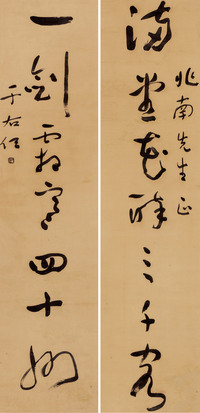 滿堂花醉三千客
兆南先生正
一劍霜寒四十州
于右任